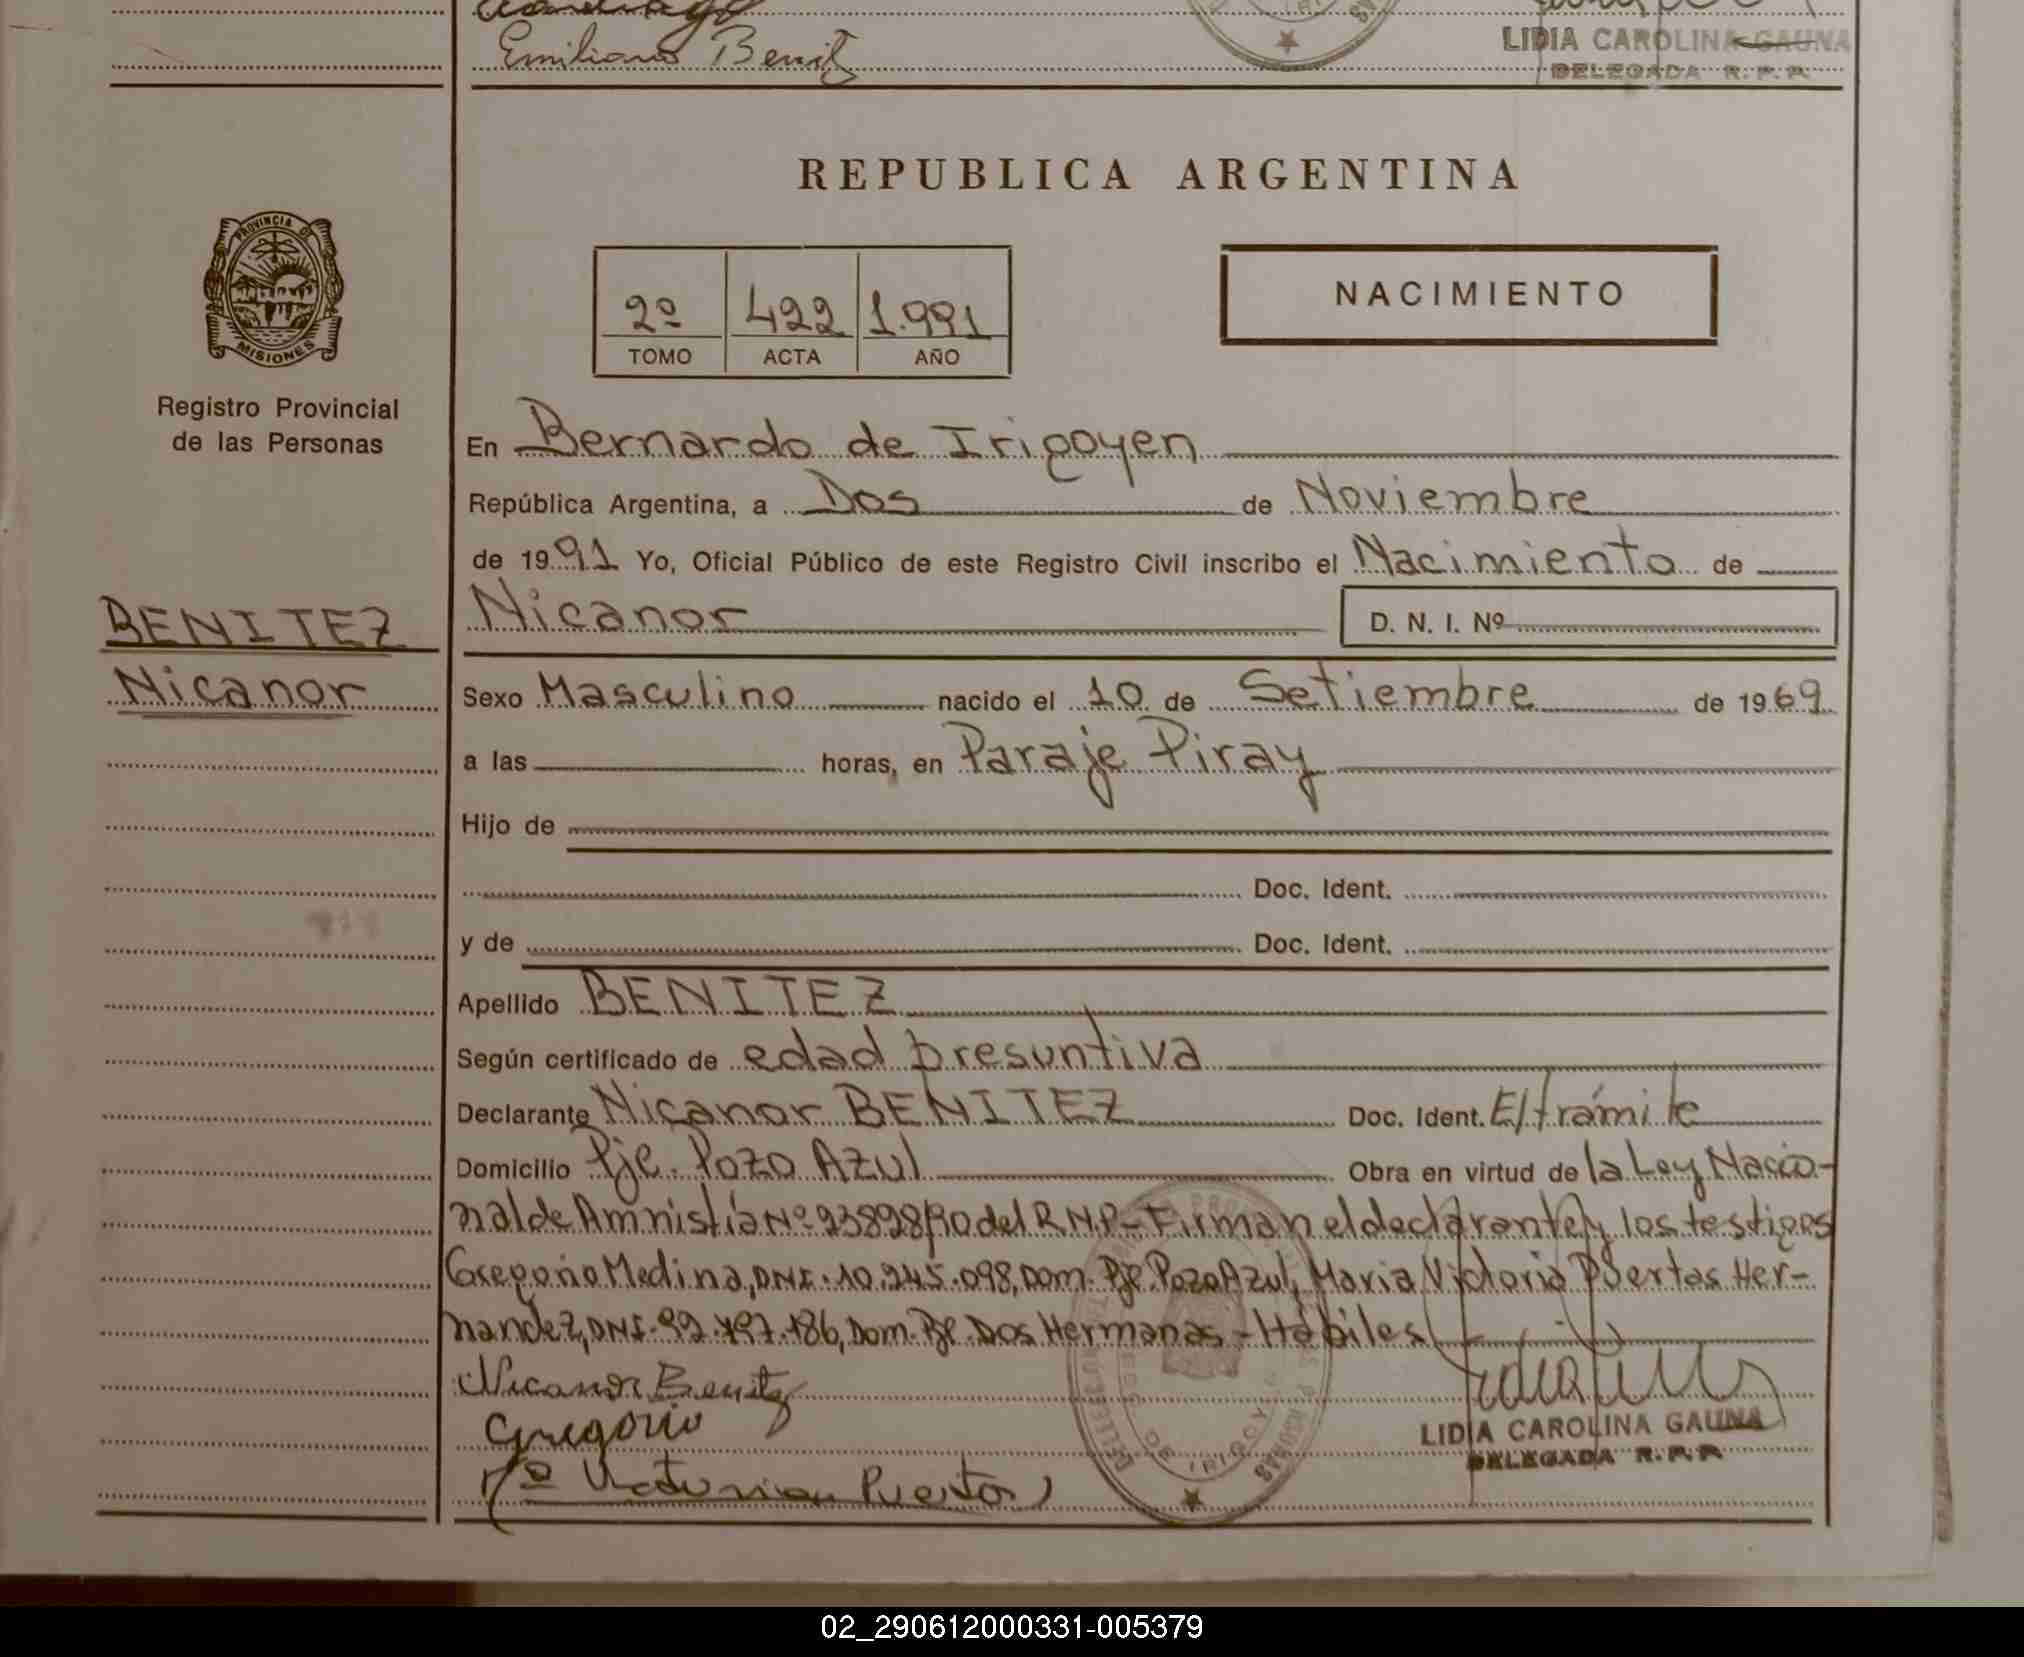 Emiliano Benitz
LIDIA CAROLINA GAUNA
DELEGADA R. P. P.
REPUBLICA ARGENTINA
PROVINCIA DE
MISIONES
Registro Provincial
de las Personas
2º 422 1.991
TOMO ACTA AÑO
NACIMIENTO
En Bernardo de Irigoyen
República Argentina, a Dos de Noviembre
de 1991 Yo, Oficial Público de este Registro Civil inscribo el Nacimiento de
BENITEZ
Nicanor
Nicanor D. N. I. Nº
Sexo Masculino nacido el 10 de Setiembre de 1969
a las horas, en Paraje Piray
Hijo de
Doc. Ident.
y de Doc. Ident.
Apellido BENITEZ
Según certificado de edad presuntiva
Declarante Nicanor BENITEZ Doc. Ident. E/trámite
Domicilio Pje. Pozo Azul Obra en virtud de la Ley Nacio-
nal de Amnistía Nº 23828/90 del R.N.P.- Firman el declarante y los testigos
Gregorio Medina, DNI. 10.245.098, Dom. Pje. Pozo Azul, Maria Victoria Puertas Her-
nandez, DNI. 92.797.186, Dom. Pje. Dos Hermanas - Hábiles
Nicanor Benitz
Gregorio
Mª Victoria Puertas
LIDIA CAROLINA GAUNA
DELEGADA R.P.P.
02_290612000331-005379